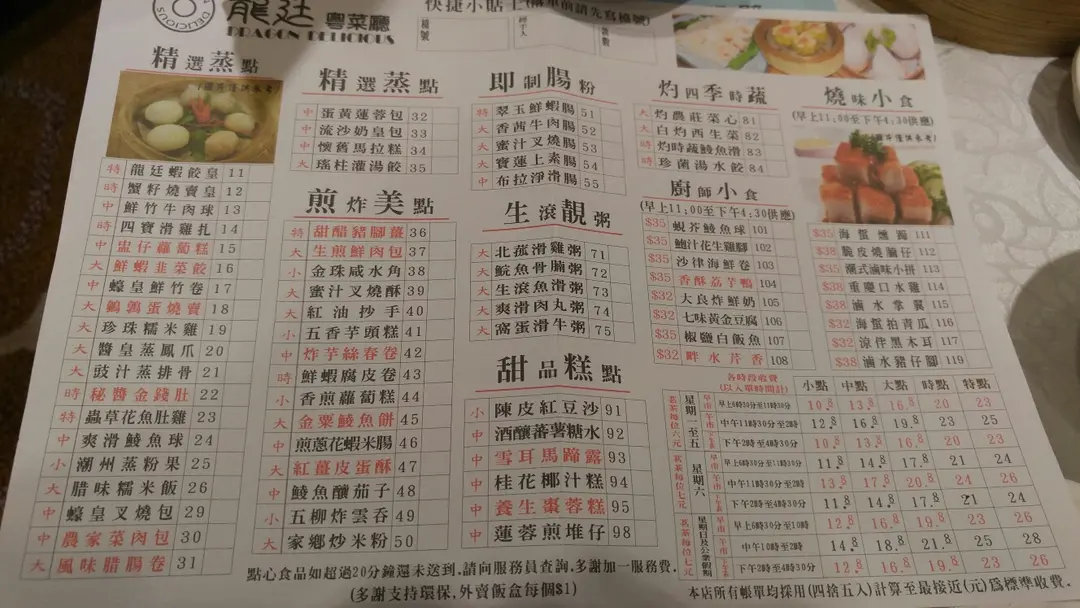 DELICIOUS
龍廷
粵菜廳
DRAGON DELICIOUS
快捷小貼士
精選蒸點
特 龍廷蝦餃皇 11
時 蟹籽燒賣皇 12
中 鮮竹牛肉球 13
時 四寶滑雞扎 14
中 盅仔蘿蔔糕 15
大 鮮蝦韭菜餃 16
中 蠔皇鮮竹卷 17
大 鵪鶉蛋燒賣 18
大 珍珠糯米雞 19
大 醬皇蒸鳳爪 20
大 豉汁蒸排骨 21
時 秘醬金錢肚 22
特 蟲草花魚肚雞 23
中 爽滑鯪魚球 24
小 潮州蒸粉果 25
大 腊味糯米飯 26
中 蠔皇叉燒包 29
中 農家菜肉包 30
大 風味腊腸卷 31
精選蒸點
中 蛋黃蓮蓉包 32
中 流沙奶皇包 33
中 懷舊馬拉糕 34
大 瑤柱灌湯餃 35
煎炸美點
特 甜醋豬腳薑 36
大 生煎鮮肉包 37
小 金珠咸水角 38
大 蜜汁叉燒酥 39
大 紅油抄手 40
小 五香芋頭糕 41
中 炸芋絲春卷 42
時 鮮蝦腐皮卷 43
小 香煎蘿蔔糕 44
大 金粟鯪魚餅 45
中 煎蔥花蝦米腸 46
大 紅薑皮蛋酥 47
中 鯪魚釀茄子 48
小 五柳炸雲吞 49
大 家鄉炒米粉 50
即制腸粉
特 翠玉鮮蝦腸 51
大 香茜牛肉腸 52
大 蜜汁叉燒腸 53
大 寶蓮上素腸 54
中 布拉淨滑腸 55
生滾靚粥
大 北菰滑雞粥 71
大 鯇魚骨腩粥 72
大 生滾魚滑粥 73
大 爽滑肉丸粥 74
大 窩蛋滑牛粥 75
甜品糕點
小 陳皮紅豆沙 91
中 酒釀蕃薯糖水 92
中 雪耳馬蹄露 93
中 桂花椰汁糕 94
中 養生棗蓉糕 95
中 蓮蓉煎堆仔 98
灼四季時蔬
大 灼農莊菜心 81
大 白灼西生菜 82
時 灼時蔬鯪魚滑 83
時 珍菌湯水餃 84
廚師小食
(早上11:00至下午4:30供應)
$35 蜆芥鯪魚球 101
$35 鮑汁花生雞腳 102
$35 沙律海鮮卷 103
$35 香酥荔芋鴨 104
$32 大良炸鮮奶 105
$32 七味黃金豆腐 106
$35 椒鹽白飯魚 107
$32 畔水芹香 108
燒味小食
(早上11:00至下午4:30供應)
$35 海蜇燻蹄 111
$38 脆皮燒腩仔 112
$35 潮式滷味小拼 113
$38 重慶口水雞 114
$38 滷水掌翼 115
$32 海蜇拍青瓜 116
$32 涼伴黑木耳 117
$38 滷水豬仔腳 119
各時段收費
(以入單時間計)
小點 中點 大點 時點 特點
星期一至五
茗茶每位六元
早市 早上6時30分至11時30分 10.8 13.8 16.8 20 23
午市 中午11時30分至2時 12.8 16.8 19.8 23 25
下午茶 下午2時至4時30分 10.8 13.8 16.8 20 23
星期六
茗茶每位七元
早市 早上6時30分至11時30分 11.8 14.8 17.8 21 24
午市 中午11時30分至2時 13.8 17.8 20.8 24 26
下午茶 下午2時至4時30分 11.8 14.8 17.8 21 24
星期日及公眾假期
茗茶每位七元
早市 早上6時30分至10時 12.8 16.8 19.8 23 26
午市 中午10時至2時 14.8 18.8 21.8 25 28
下午茶 下午2時至4時30分 12.8 16.8 19.8 23 26
點心食品如超過20分鐘還未送到,請向服務員查詢,多謝加一服務費.
(多謝支持環保,外賣飯盒每個$1)
本店所有帳單均採用(四捨五入)計算至最接近(元)為標準收費.